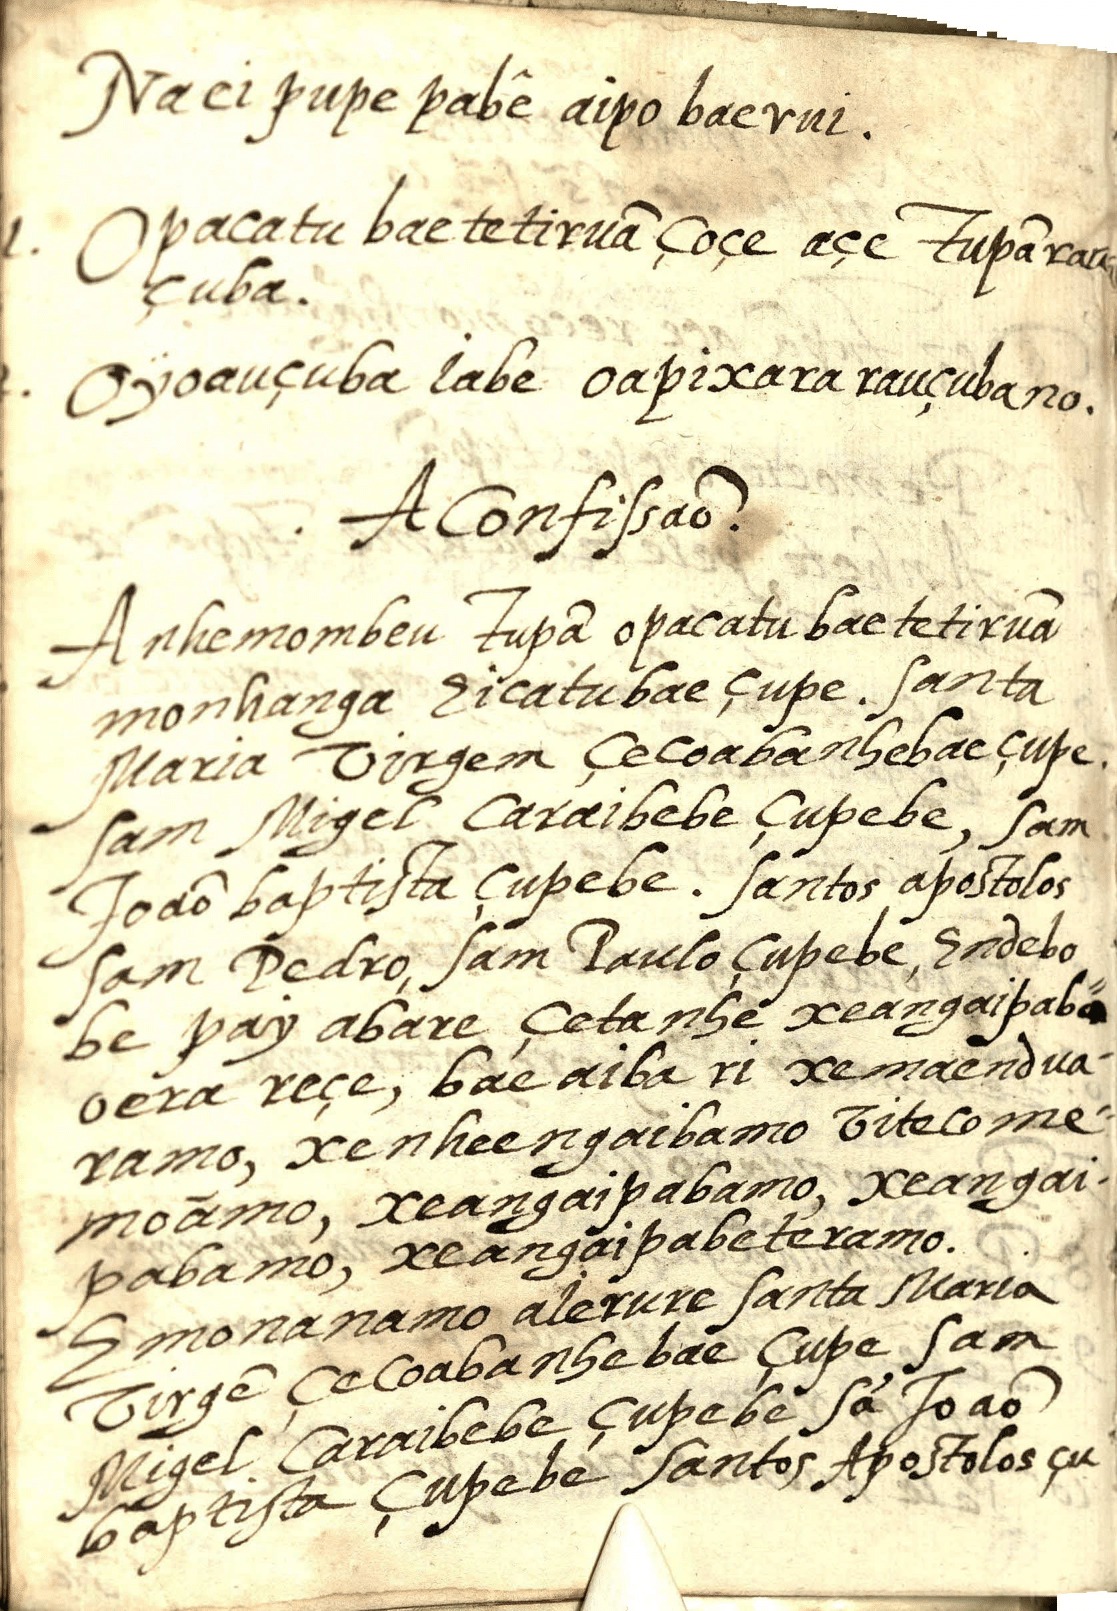 Naei pupe pabê aipo baerui.
1. Opacatu baetetiruã çoçe açe Tupã rau
çuba.
2. Oyoauçuba iabe oapixara rauçubano.
A Confissaõ.
Anhemombeu Tupã opacatu baetetiruã
monhanga Eicatubae çupe. Santa
Maria Virgem Çecoabanhebae çupe.
Sam Migel Caraibebe Çupebe, Sam
Joaõ baptista çupebe. Santos apostolos
Sam Pedro, Sam Paulo çupebe, Endebo
be pay abare Çetanhe xeangaipaba
oera reçe, bae aiba ri xemaendua-
ramo, xenheengaibamo Vitecome-
moãmo, xeangaipabamo, xeangai-
pabamo, xeangaipabeteramo.
Emonanamo aierure Santa Maria
Virgẽ Çecoabanhebae Çupe Sam
Migel Caraibebe Çupebe Sã Joaõ
baptista Çupebe Santos Apostolos çu